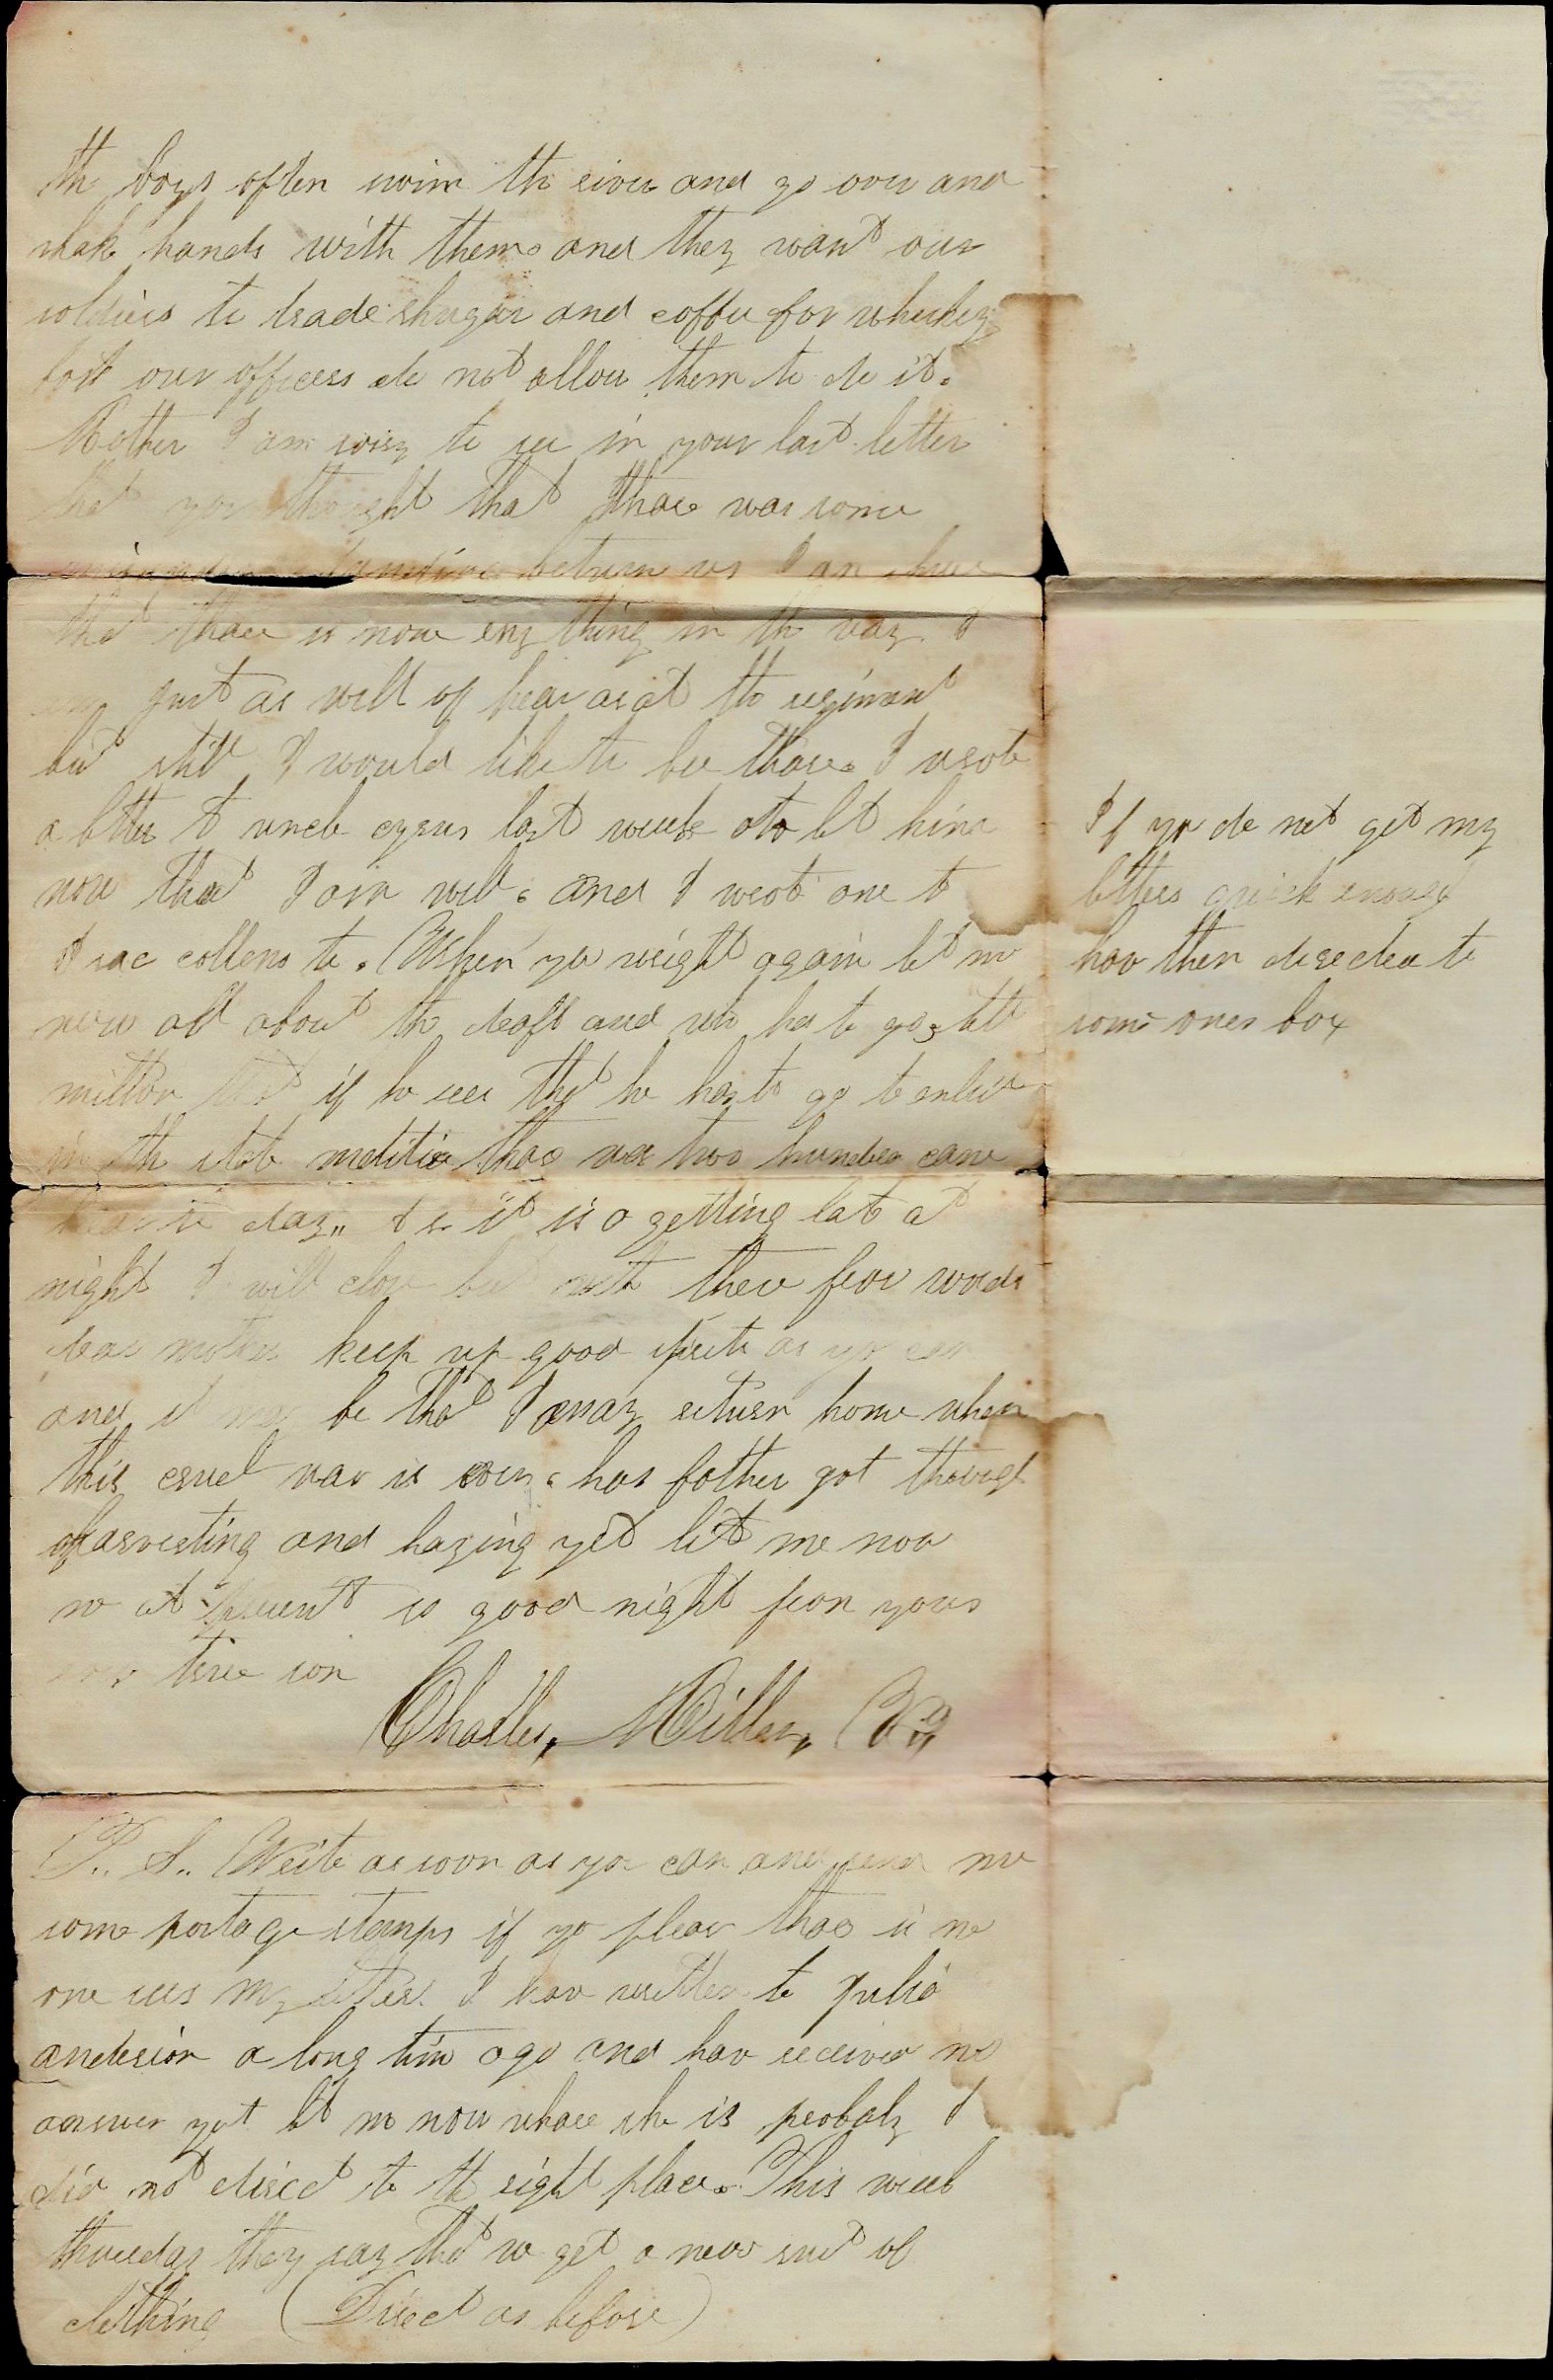 the boys often swim the river and go over and
shake hands with them and they want our
soldiers to trade shugar and coffee for wheskey
but our officers do not allow them to do it.
Mother I am sory to see in your last letter
that you thought that thare was some
between us I am shure
that thare is none eny thing in the way. I
am just as well of hear as at the regiment
but still I would like to bee thare. I wrote
a letter to uncle cyrus last weeke to let him
now that I am well. and I wrot one to
Isac collens to. When yo wright again let me
now all about the draft and who has to go, tell
milton that if he sees that he has to go to enlist
in the state melitia thare was two hundred came
hear to day,, As it is a getting late at
night I will close but with these few words
dear mother keep up good spirits as yo can
and it may be that I may return home when
this cruel war is over. has father got through
harvesting and haying yet let me now
no at present is good night from yours
true son
Charles,, Miller,,
P.. S.. Write as soon as yo can and send me
some postage stamps if yo please thare is no
one sees my letters. I have written to Julia
anderson a long time ago and have received no
answer yet let me now whare she is probaly I
did not direct to the right place. This week
thursday they say that we get a new suit of
clothing (Direct as before)
If yo do not get my
letters quick enough
have them directed to
some ones box